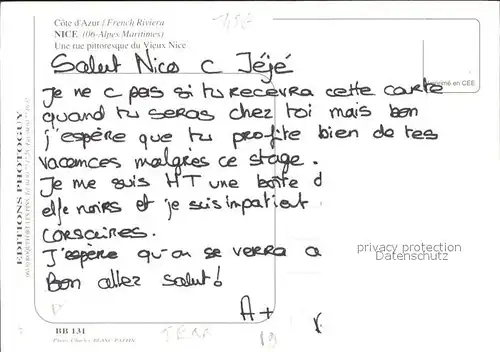 Côte d'Azur / French Riviera
NICE (06-Alpes Maritimes)
Une rue pittoresque du Vieux Nice
Salut Nico c Jéjé
Imprimé en CEE
Je ne c pas si tu recevra cette carte
quand tu seras chez toi mais bon
j'espère que tu profite bien de tes
vacances malgrès ce stage.
Je me suis HT une boîte d
elfe noirs et je suis impatient
corsaires.
J'espère qu'on se verra a
Bon allez salut!
A+
privacy protection
Datenschutz
EDITIONS PHOTOGUY
BB 131
Photo Charles BLANC PATTIN